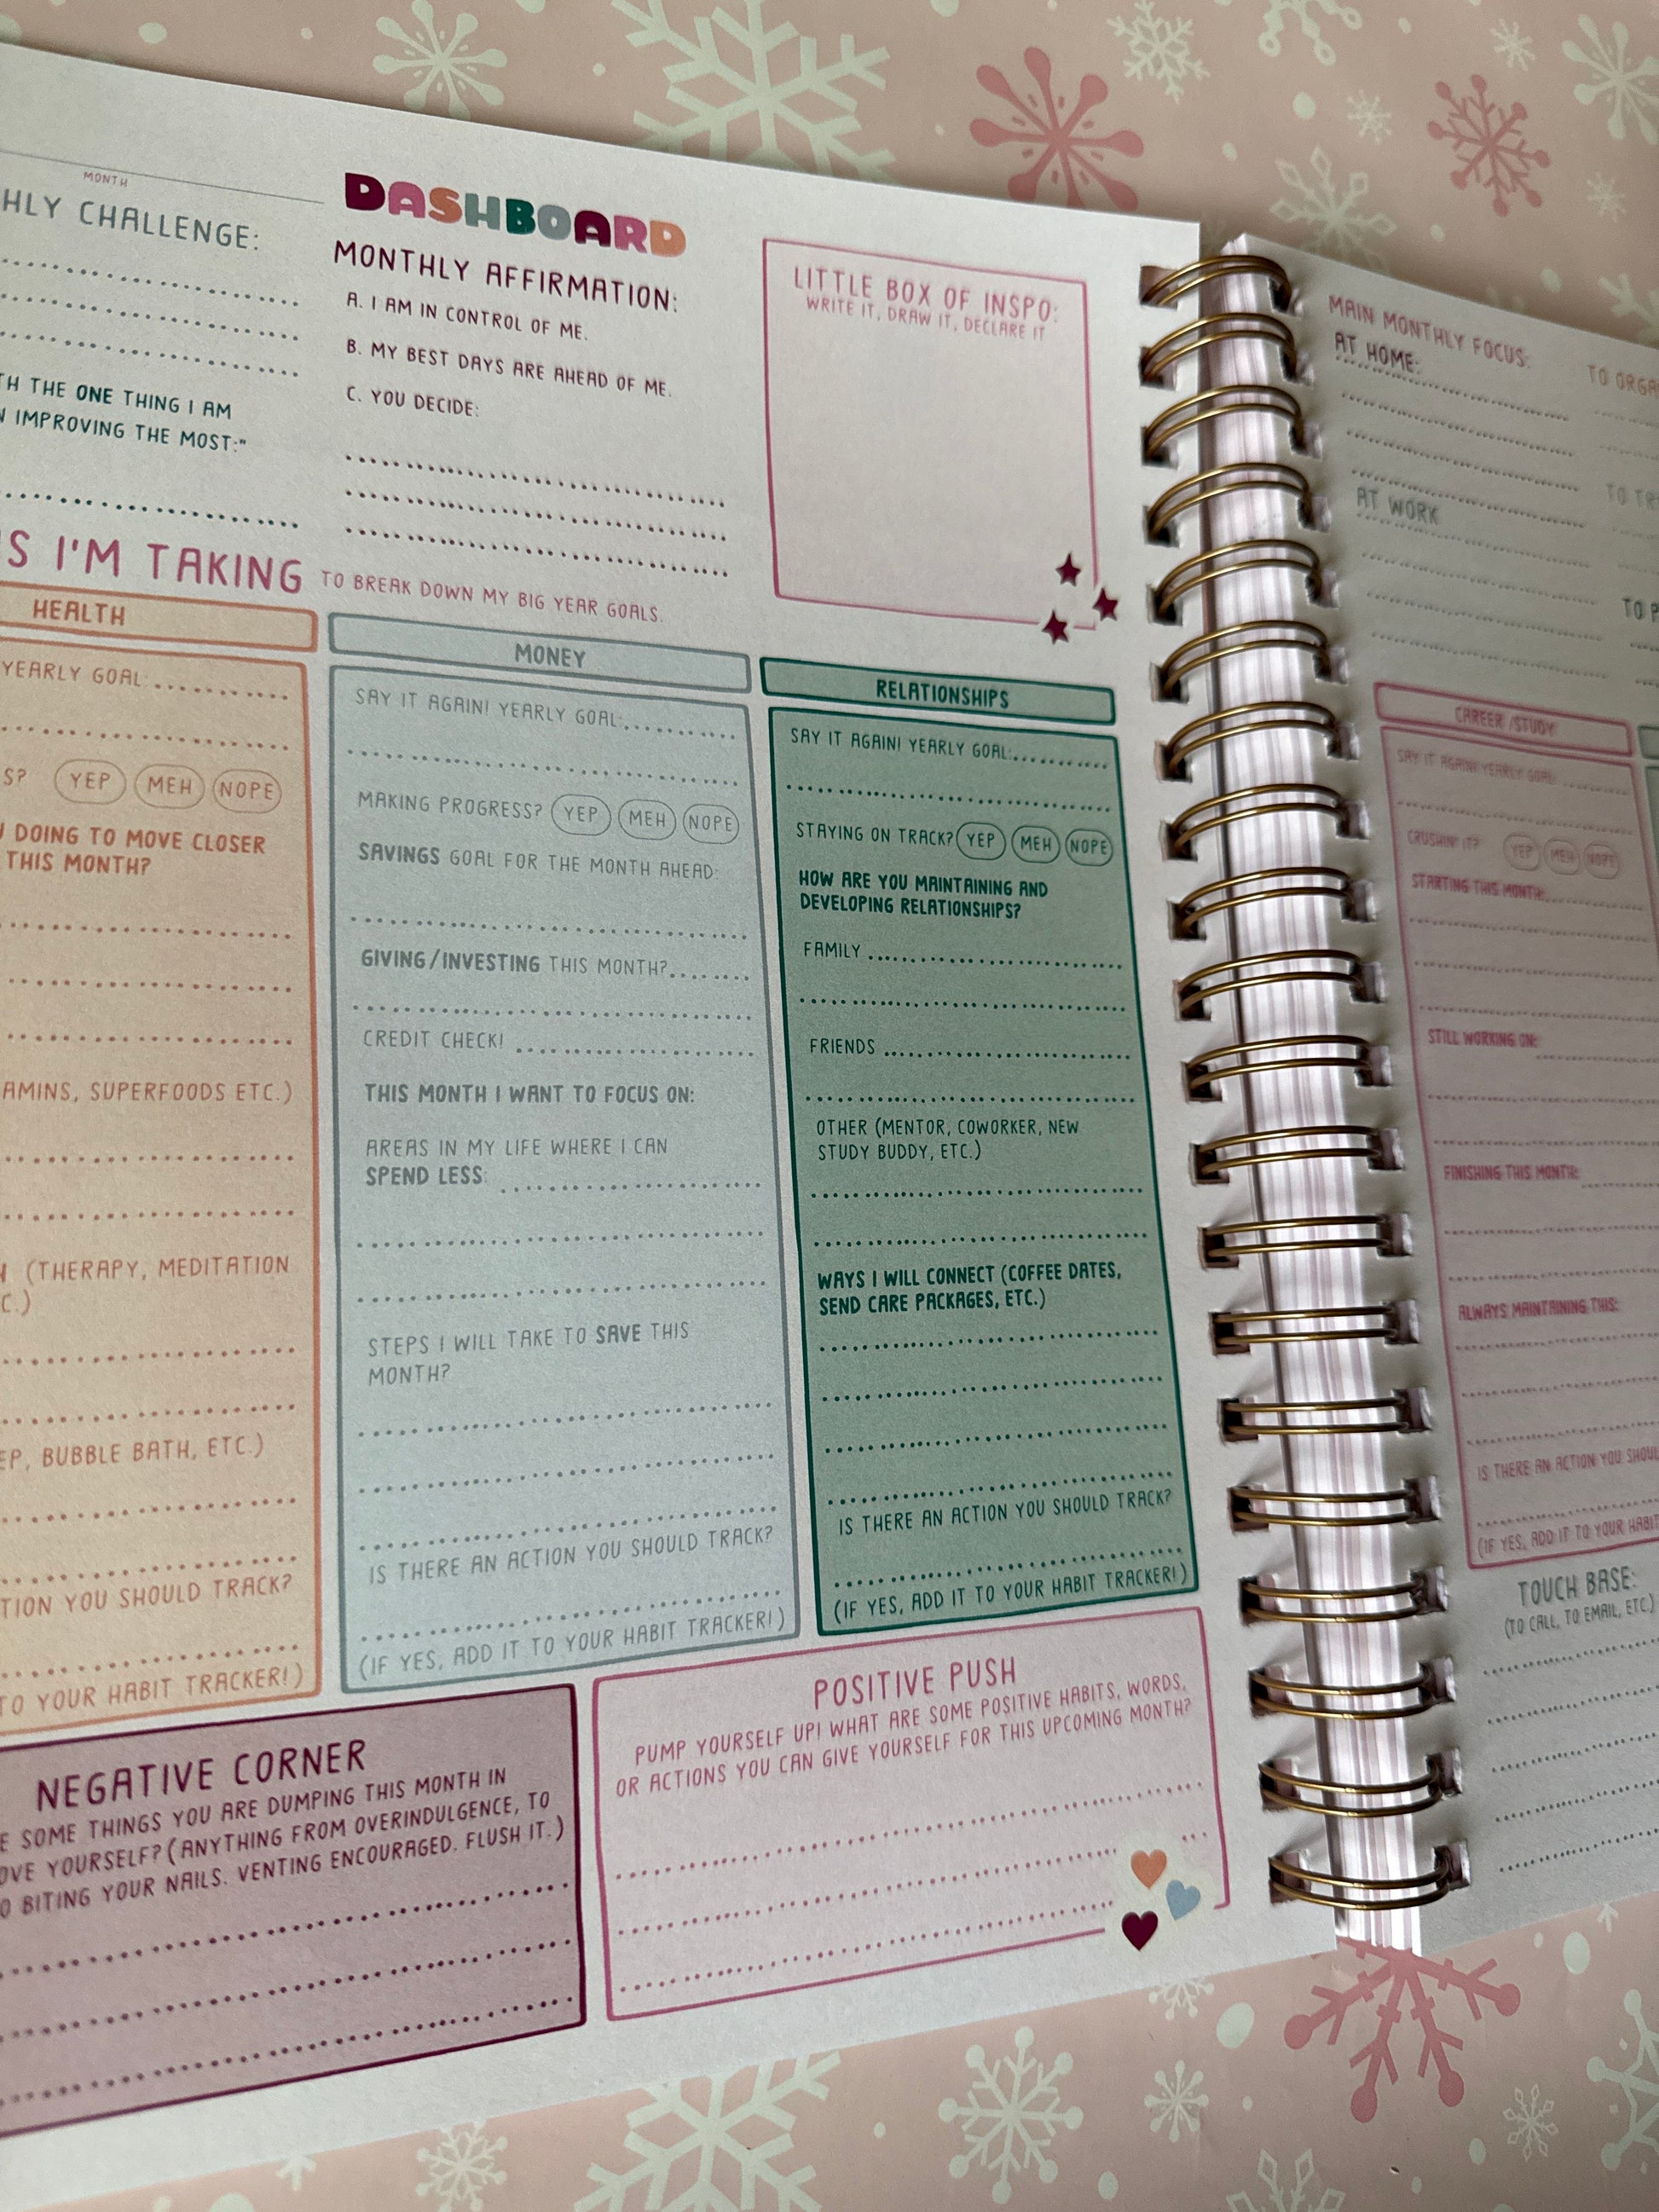 MONTH
DASHBOARD
HLY CHALLENGE:
TH THE ONE THING I AM
N IMPROVING THE MOST:"
MONTHLY AFFIRMATION:
A. I AM IN CONTROL OF ME.
B. MY BEST DAYS ARE AHEAD OF ME.
C. YOU DECIDE:
LITTLE BOX OF INSPO:
WRITE IT, DRAW IT, DECLARE IT
S I'M TAKING TO BREAK DOWN MY BIG YEAR GOALS.
HEALTH
YEARLY GOAL:
S? YEP MEH NOPE
DOING TO MOVE CLOSER
THIS MONTH?
AMINS, SUPERFOODS ETC.)
(THERAPY, MEDITATION
C.)
EP, BUBBLE BATH, ETC.)
TION YOU SHOULD TRACK?
TO YOUR HABIT TRACKER!)
MONEY
SAY IT AGAIN! YEARLY GOAL:
MAKING PROGRESS? YEP MEH NOPE
SAVINGS GOAL FOR THE MONTH AHEAD:
GIVING/INVESTING THIS MONTH?
CREDIT CHECK!
THIS MONTH I WANT TO FOCUS ON:
AREAS IN MY LIFE WHERE I CAN
SPEND LESS:
STEPS I WILL TAKE TO SAVE THIS
MONTH?
IS THERE AN ACTION YOU SHOULD TRACK?
(IF YES, ADD IT TO YOUR HABIT TRACKER!)
RELATIONSHIPS
SAY IT AGAIN! YEARLY GOAL:
STAYING ON TRACK? YEP MEH NOPE
HOW ARE YOU MAINTAINING AND
DEVELOPING RELATIONSHIPS?
FAMILY
FRIENDS
OTHER (MENTOR, COWORKER, NEW
STUDY BUDDY, ETC.)
WAYS I WILL CONNECT (COFFEE DATES,
SEND CARE PACKAGES, ETC.)
IS THERE AN ACTION YOU SHOULD TRACK?
(IF YES, ADD IT TO YOUR HABIT TRACKER!)
NEGATIVE CORNER
E SOME THINGS YOU ARE DUMPING THIS MONTH IN
OVE YOURSELF? (ANYTHING FROM OVERINDULGENCE, TO
O BITING YOUR NAILS. VENTING ENCOURAGED. FLUSH IT.)
POSITIVE PUSH
PUMP YOURSELF UP! WHAT ARE SOME POSITIVE HABITS, WORDS,
OR ACTIONS YOU CAN GIVE YOURSELF FOR THIS UPCOMING MONTH?
MAIN MONTHLY FOCUS:
AT HOME:
AT WORK
TO ORGA
TO TR
TO P
CAREER/STUDY
SAY IT AGAIN! YEARLY GOAL:
CRUSHIN' IT? YEP MEH NOPE
STARTING THIS MONTH:
STILL WORKING ON:
FINISHING THIS MONTH:
ALWAYS MAINTAINING THIS:
IS THERE AN ACTION YOU SHOUL
(IF YES, ADD IT TO YOUR HABIT
TOUCH BASE:
(TO CALL, TO EMAIL, ETC.)